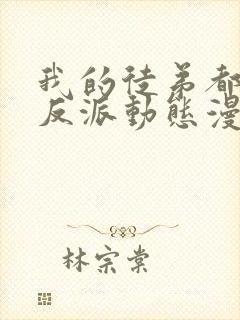 我的徒弟都
反派動態漫
林宗棠